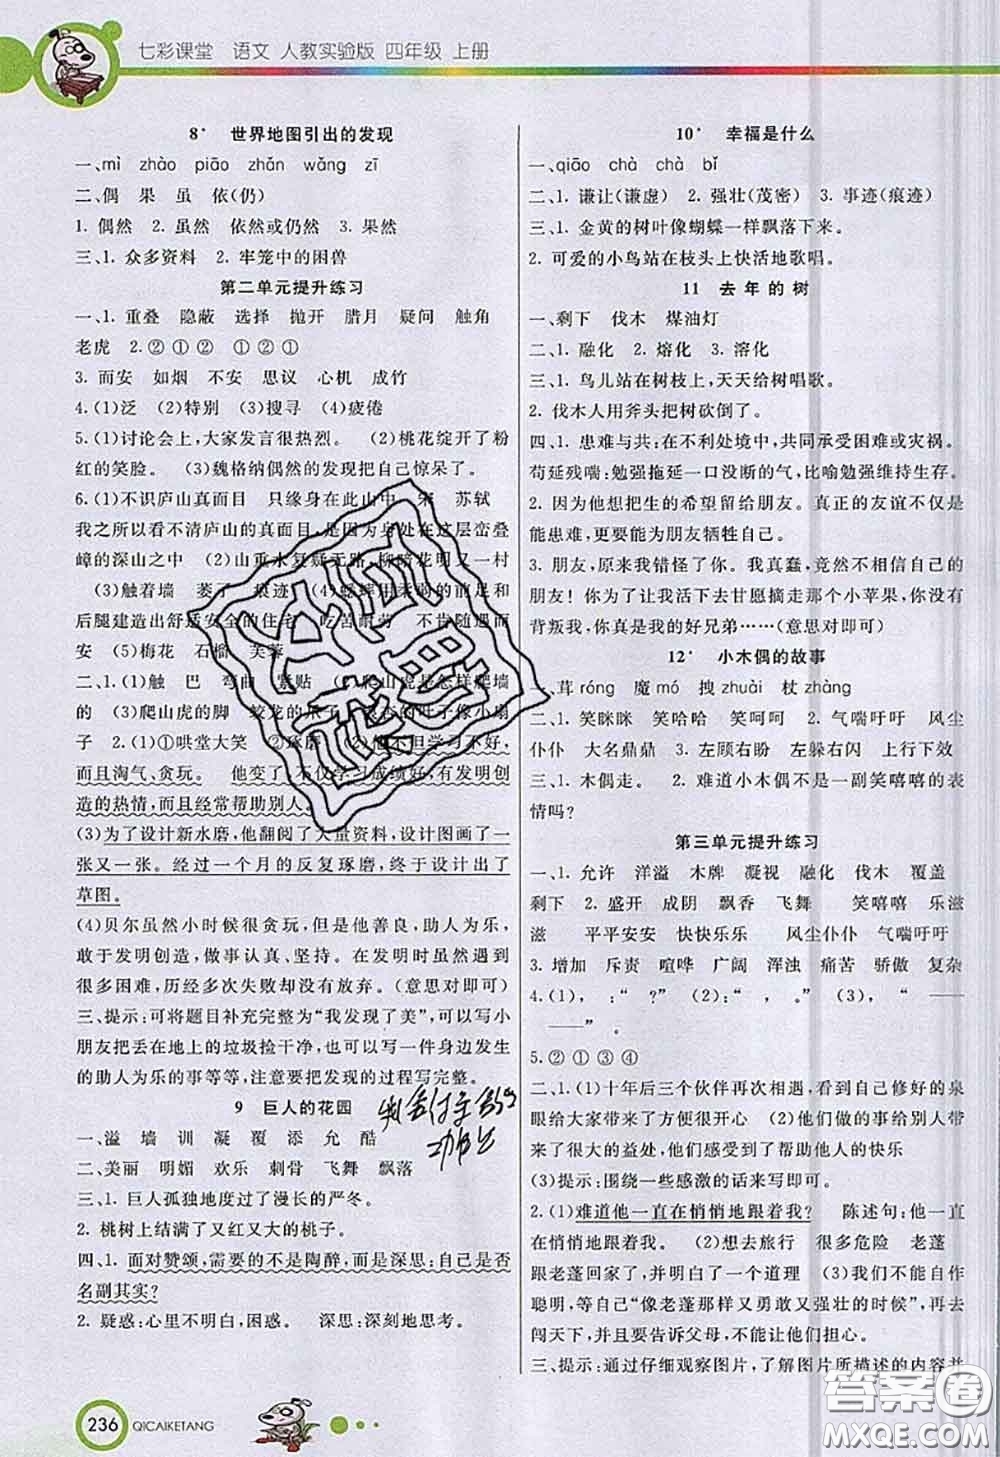 七彩课堂 语文 人教实验版 四年级 上册
8* 世界地图引出的发现
一、mì zhào piāo zhǎn wǎng zī
二、偶 果 虽 依(仍)
1. 偶然 2. 虽然 依然或仍然 3. 果然
三、1. 众多资料 2. 牢笼中的困兽
第二单元提升练习
一、1. 重叠 隐蔽 选择 抛开 腊月 疑问 触角
老虎 2.②①② ①②①
3. 而安 如烟 不安 思议 心机 成竹
4.(1)泛 (2)特别 (3)搜寻 (4)疲倦
5.(1)讨论会上,大家发言很热烈。 (2)桃花绽开了粉
红的笑脸。 (3)魏格纳偶然的发现把自己惊呆了。
6.(1)不识庐山真面目 只缘身在此山中 宋 苏轼
我之所以看不清庐山的真面目,是因为身处在这层峦叠
嶂的深山之中 (2)山重水复疑无路,柳暗花明又一村
(3)触着墙 萎了 痕迹 (4)蟋蟀用柔弱的前足和
后腿建造出舒适安全的住宅 吃苦耐劳 不肯随遇而
安 (5)梅花 石榴 芙蓉
二、1.(1)触 巴 弯曲 紧贴 (2)爬山虎是怎样爬墙
的 (3)爬山虎的脚 蛟龙的爪子 叶子像小扇
子 2.(1)①哄堂大笑 ②琢磨 (2)他不但学习不好,
而且淘气、贪玩。 他变了,不仅学习成绩好,有发明创
造的热情,而且经常帮助别人。
(3)为了设计新水磨,他翻阅了大量资料,设计图画了一
张又一张。经过一个月的反复琢磨,终于设计出了
草图。
(4)贝尔虽然小时候很贪玩,但他善良,助人为乐,对于
发明创造,做得认真、坚持。在发明时虽然遇见了
很多困难,历经多次失败却没有放弃。(意思对即可)
三、提示:可将题目补充完整为“我发现了美”,可以写小
朋友把丢在地上的垃圾捡干净,也可以写一件身边发生
的助人为乐的事等等,注意要把发现的过程写完整。
9 巨人的花园
一、溢 墙 训 凝 覆 添 允 酷
二、美丽 明媚 欢乐 刺骨 飞舞 飘落
三、1. 巨人孤独地度过了漫长的严冬。
2. 桃树上结满了又红又大的桃子。
四、1. 面对赞颂,需要的不是陶醉,而在于深思:我是否
名副其实?
2. 疑惑:心里不明白,困惑。 深思:深刻地思考。
10* 幸福是什么
一、qiāo chà chà bǐ
二、1. 谦让(谦虚) 2. 强壮(茂密) 3. 事迹(痕迹)
三、1. 金黄的树叶像蝴蝶一样飘落下来。
2. 可爱的小鸟站在枝头上快活地歌唱。
11 去年的树
一、剩下 伐木 煤油灯
二、1. 融化 2. 熔化 3. 溶化
三、1. 鸟儿站在树枝上,天天给树唱歌。
2. 伐木人用斧头把树砍倒了。
四、1. 患难与共:在不利处境中,共同承担困难或灾祸。
苟延残喘:勉强拖延一口没断的气,比喻勉强维持生存。
2. 因为他想把生的希望留给朋友。真正的友谊不仅是
能患难,更要能为朋友牺牲自己。
3. 朋友,原来是我错怪了你。我真蠢,竟然不相信自己的
朋友!你为了让我活下去甘愿摘走那个小苹果,你没有
背叛我,你真是我的好兄弟……(意思对即可)
12* 小木偶的故事
一、茸 róng 魔 mó 拽 zhuài 杖 zhàng
二、1. 笑眯眯 笑哈哈 笑呵呵 2. 气喘吁吁 风尘
仆仆 大名鼎鼎 3. 左顾右盼 左躲右闪 上行下效
三、1. 木偶走。 2. 难道小木偶不是一副笑嘻嘻的表
情吗?
第三单元提升练习
一、1. 允许 洋溢 木牌 凝视 融化 伐木 覆盖
剩下 2. 盛开 成阴 飘香 飞舞 笑嘻嘻 乐滋
滋 平平安安 快快乐乐 风尘仆仆 气喘吁吁
3. 增加 斥责 喧哗 广阔 浑浊 痛苦 骄傲 复杂
4.(1), :“ ?” (2):“ , 。” (3), “ ——
——” 。
5.②①③④
二、1.(1)十年后三个伙伴再次相遇,看到自己修好的泉
眼给大家带来了开心 (2)他们做的事给别人带
来了很大的益处,他们感受到了帮助他人的快乐
(3)提示:围绕一些感激的话来写。
2.(1)难道他一直在悄悄地跟着我? 陈述句:他一直
在悄悄地跟着我。 (2)想去旅行 很多危险 老蓬
跟着老蓬回家了,并明白了一个道理 (3)我们不能自作
聪明,等有了“像老蓬那样又勇敢又强壮的时候”,再去
闯天下,并且要告诉父母,不能让他们担心。
三、提示:通过仔细观察图片,了解图片所描述的内容并
236 QICAIKETANG
答案圈
MXQE.COM